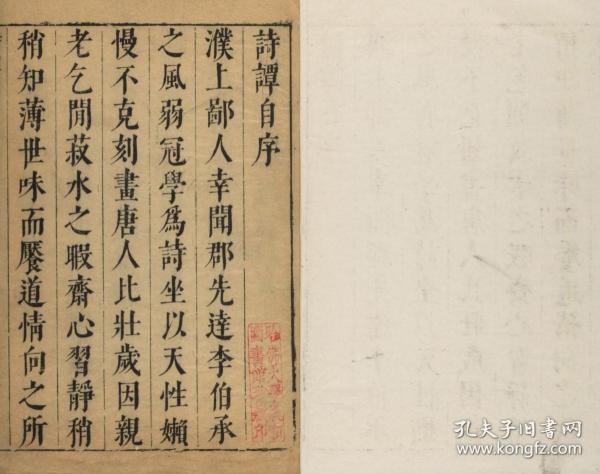 詩譚自序
濮上鄙人幸聞郡先達李伯承
之風弱冠學為詩坐以天性嬾
慢不克刻畫唐人比壯歲因親
老乞閒菽水之暇齋心習靜稍
稍知薄世味而饜道情向之所
孔夫子旧书网
www.kongfz.com